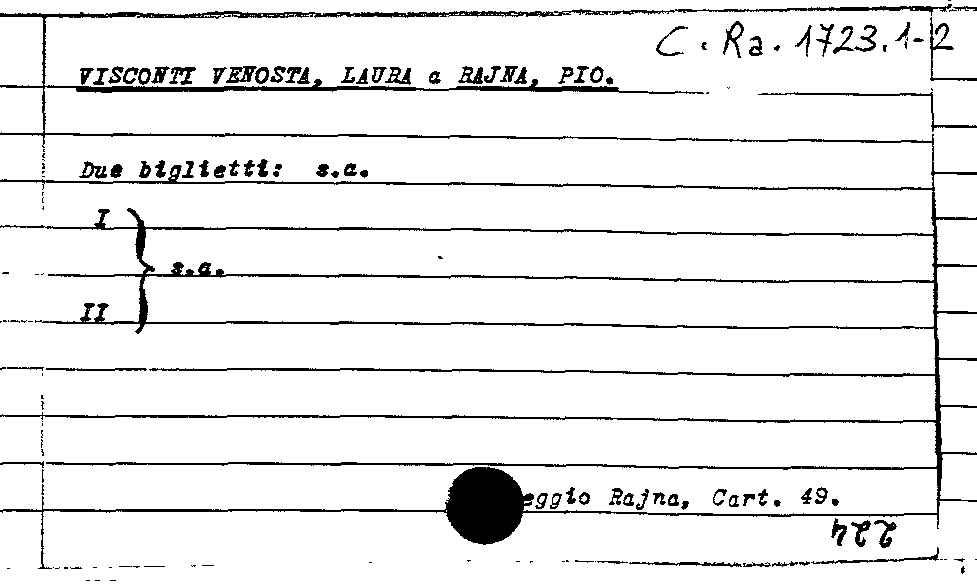 C. Ra. 1723.1-2
VISCONTI VENOSTA, LAURA a RAJNA, PIO.
Due biglietti: s.a.
I
} s.a.
II
eggio Rajna, Cart. 49.
224